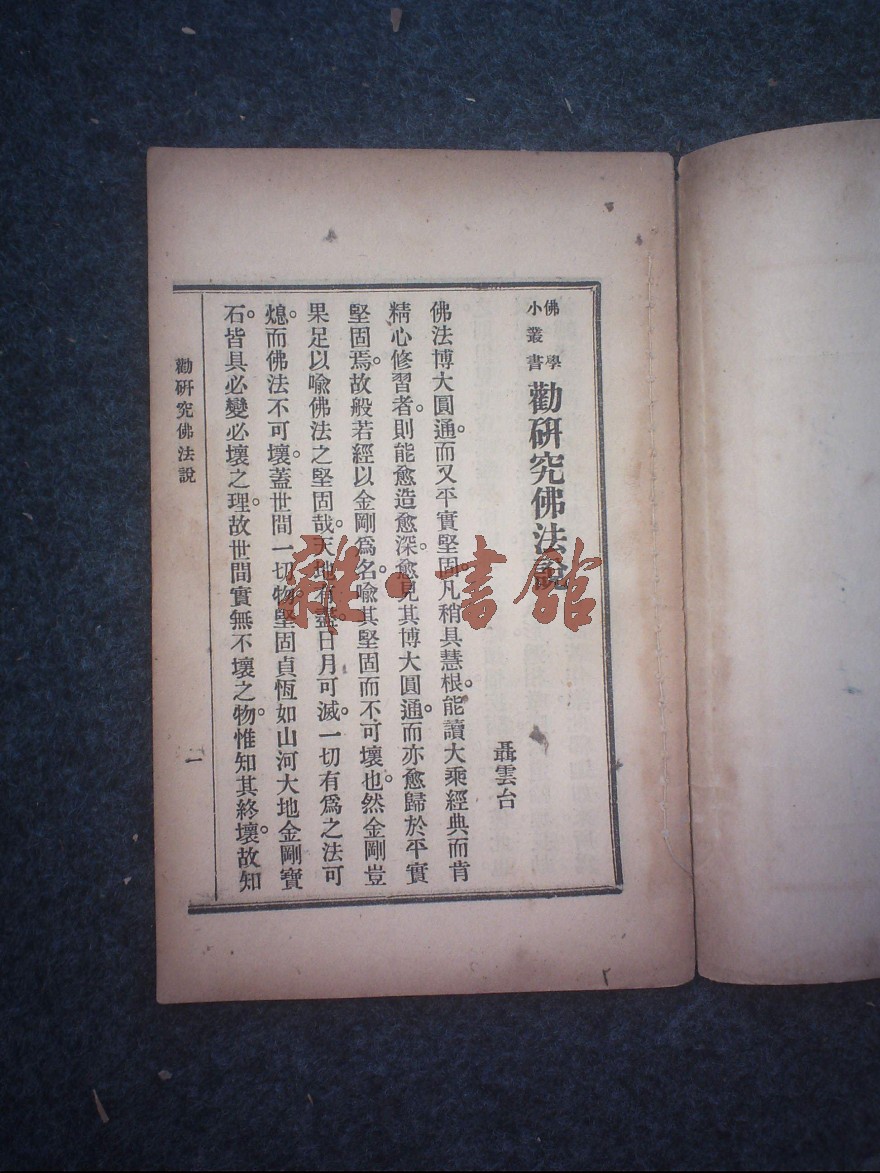 佛學
小叢書
勸硏究佛法說
聶雲台
佛法博大圓通。而又平實堅固。凡稍具慧根。能讀大乘經典而肯
精心修習者。則能愈造愈深。愈見其博大圓通。而亦愈歸於平實
堅固焉。故般若經以金剛爲名。喩其堅固而不可壞也。然金剛豈
果足以喩佛法之堅固哉。天地有盡。日月可滅。一切有爲之法可
熄。而佛法不可壞。蓋世間一切物。堅固貞恆如山河大地金剛寶
石。皆具必變必壞之理。故世間實無不壞之物。惟知其終壞。故知
勸硏究佛法說
一
雜·書館